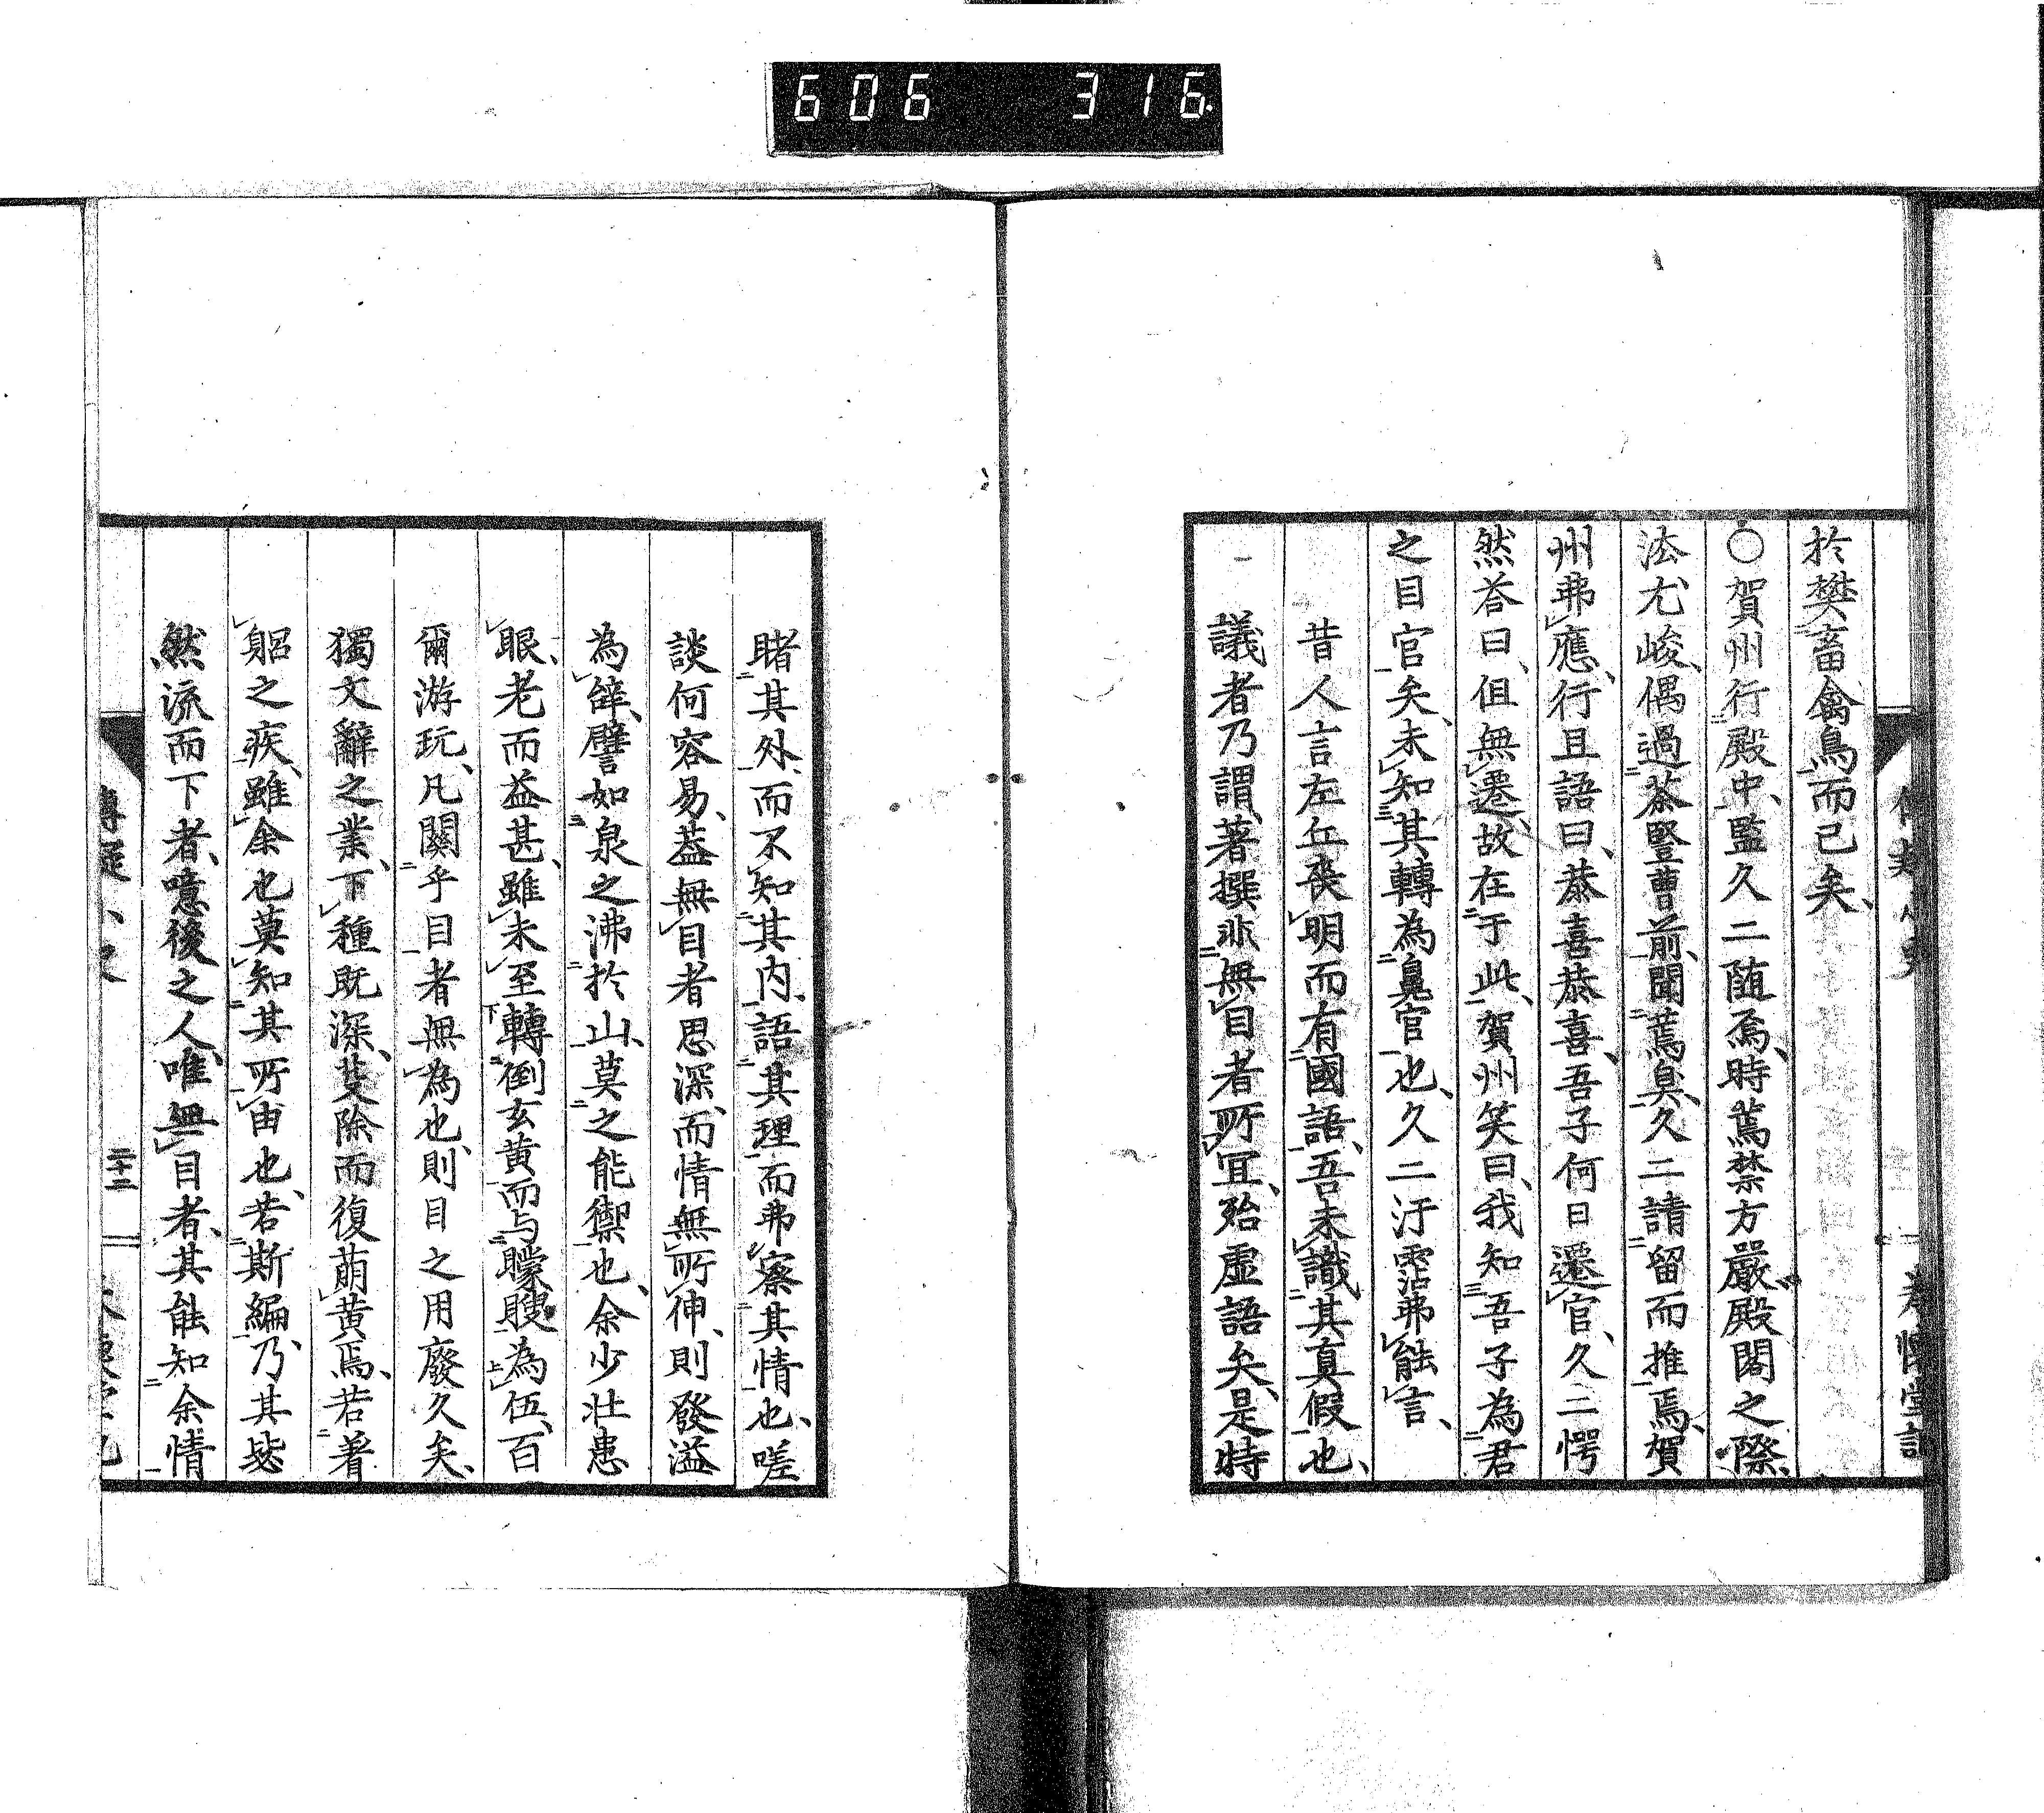 606 316
於樊畜禽鳥而已矣、
〇賀州行殿中、監久二随焉、時蔫禁方嚴、殿閤之際、
法尤峻、偶過茶竪曹前、聞蔫臭、久二請留而推焉、賀
州弗應、行且語曰、恭喜恭喜、吾子何日遷官、久二愕
然荅曰、但無遷、故在于此、賀州笑曰、我知吾子為君
之目官矣、未知其轉為鼻官也、久二汗霑弗能言、
昔人言左丘喪明而有國語、吾未識其真假也、
議者乃謂、著撰非無目者所冝、殆虛語矣、是特
睹其外、而不知其内、語其理而弗察其情也、嗟
談何容易、葢無目者思深、而情無所伸、則發溢
為辭、譬如泉之沸於山、莫之能禦也、余少壮患
眼、老而益甚、雖未至轉倒玄黄而与矇瞍為伍、百
爾游玩、凡關乎目者無為也、則目之用廢久矣、
獨文辭之業、下種既深、芟除而復萠黄焉、若着
躳之疾、雖余也莫知其所由也、若斯編、乃其毖
然流而下者、噫後之人、唯無目者、其能知余情
二十二